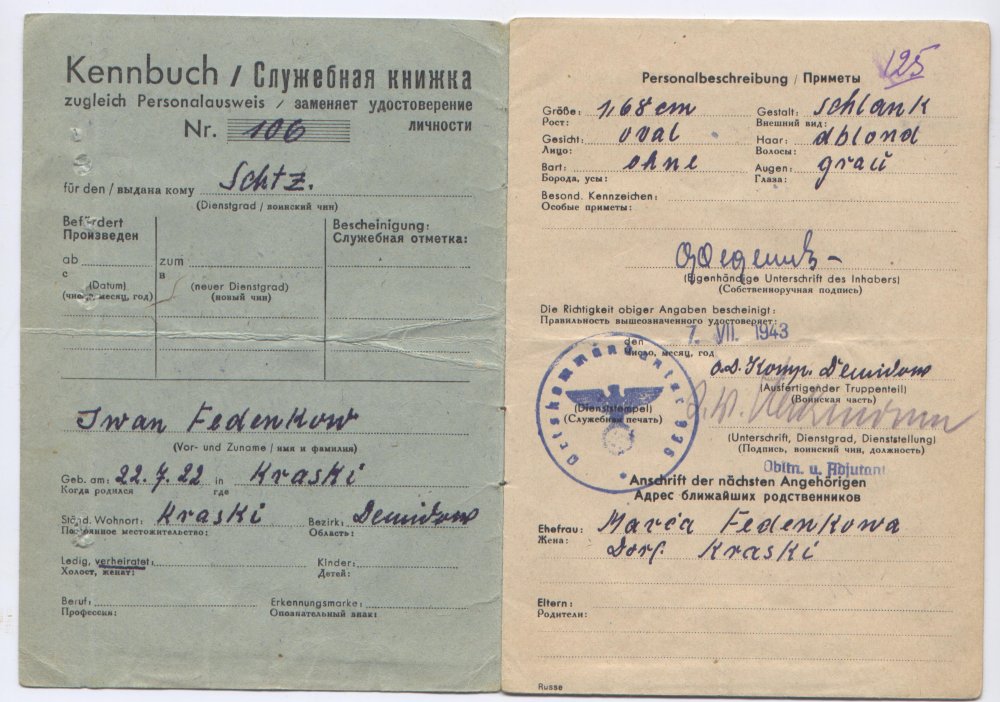 Kennbuch / Служебная книжка
zugleich Personalausweis / заменяет удостоверение
личности
Nr. 106
für den / выдана кому Schtz.
(Dienstgrad / воинский чин)
Befördert
Произведен
Bescheinigung:
Служебная отметка:
ab
с
zum
в
(Datum)
(число, месяц, год)
(neuer Dienstgrad)
(новый чин)
Iwan Fedenkow
(Vor- und Zuname / имя и фамилия)
Geb. am: 22.7.22 in Kraski
Когда родился где
Ständ. Wohnort: Kraski Bezirk: Demidow
Постоянное местожительство: Область:
Ledig, verheiratet: Kinder:
Холост, женат: Детей:
Beruf: Erkennungsmarke:
Профессия: Опознавательный знак:
125
Personalbeschreibung / Приметы
Größe: 1,68 cm Gestalt: schlank
Рост: Внешний вид:
Gesicht: oval Haar: dblond
Лицо: Волосы:
Bart: ohne Augen: grau
Борода, усы: Глаза:
Besond. Kennzeichen:
Особые приметы:
(Eigenhändige Unterschrift des Inhabers)
(Собственноручная подпись)
Die Richtigkeit obiger Angaben bescheinigt:
Правильность вышеозначенного удостоверяет:
den 7. VII. 1943
число, месяц, год
O.D. Komp. Demidow
(Ausfertigender Truppenteil)
(Воинская часть)
Ortskommandantur 936
(Dienststempel)
(Служебная печать)
(Unterschrift, Dienstgrad, Dienststellung)
(Подпись, воинский чин, должность)
Obltn. u. Adjutant
Anschrift der nächsten Angehörigen
Адрес ближайших родственников
Ehefrau: Maria Fedenkowa
Жена: Dorf Kraski
Eltern:
Родители:
Russe